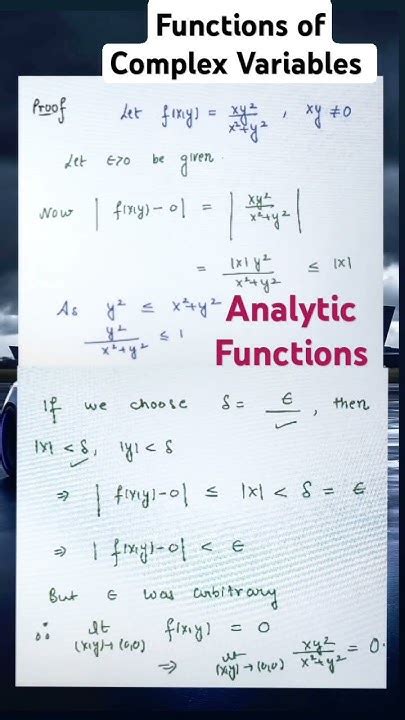 Functions of
Complex Variables
Proof Let f(x,y) = xy²/x²+y² , xy ≠ 0
Let ∈>0 be given.
Now | f(x,y) - 0 | = | xy²/x²+y² |
= |x| y²/x²+y² ≤ |x|
As y² ≤ x²+y²
y²/x²+y² ≤ 1
Analytic
Functions
If we choose δ = ∈ , then
|x| < δ, |y| < δ
⇒ | f(x,y) - 0 | ≤ |x| < δ = ∈
⇒ | f(x,y) - 0 | < ∈
But ∈ was arbitrary
∴ lt (x,y)→(0,0) f(x,y) = 0
⇒ lt (x,y)→(0,0) xy²/x²+y² = 0.